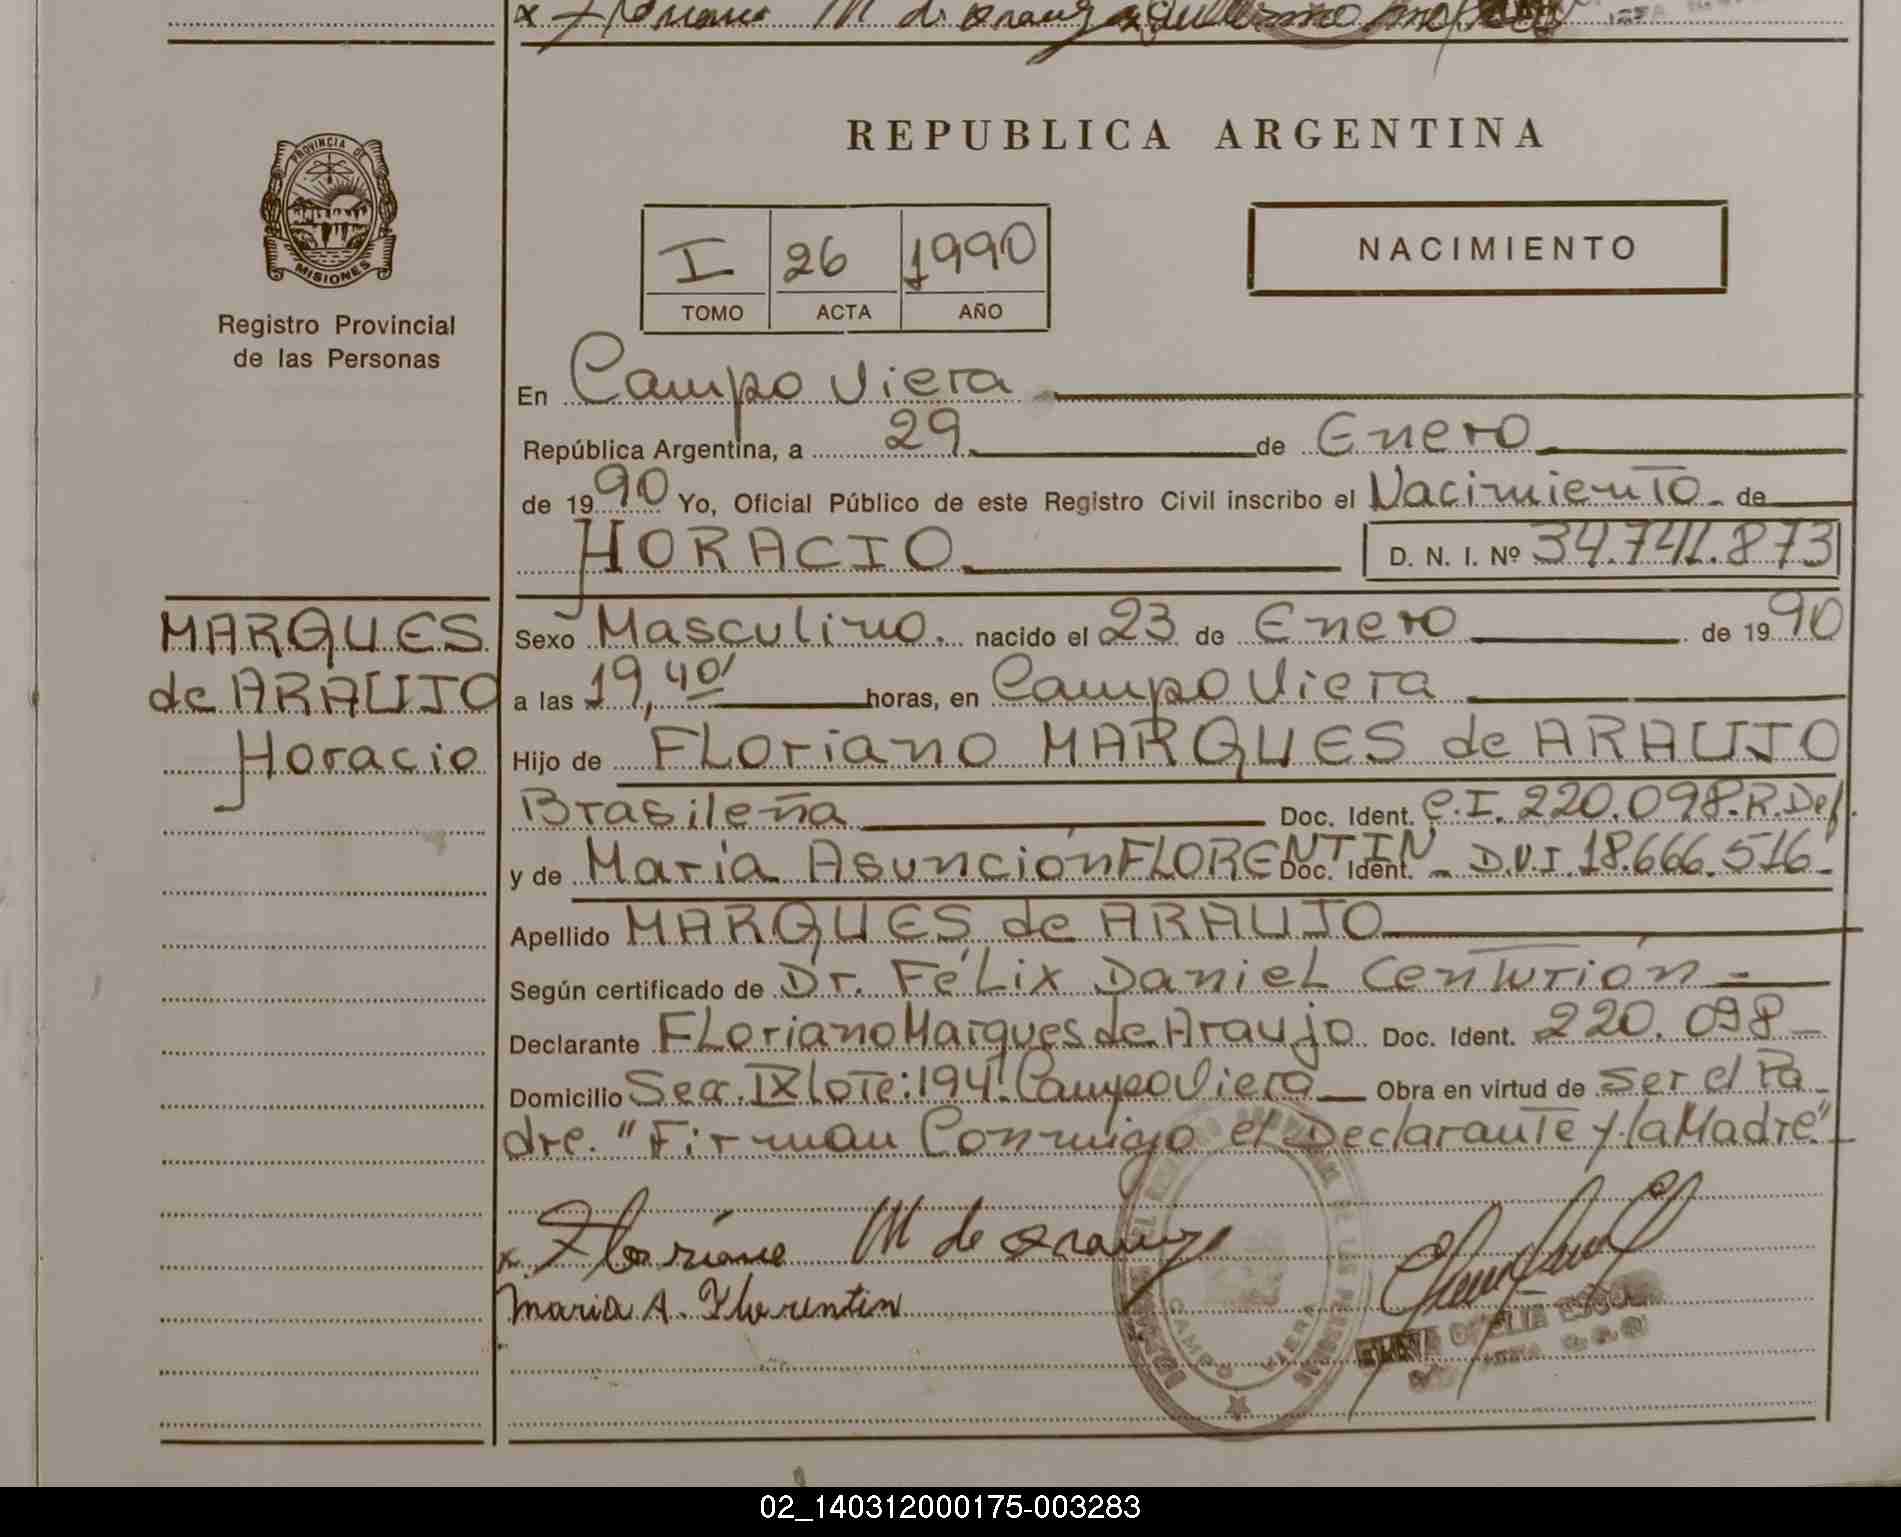 x Floriano M de Araujo
REPUBLICA ARGENTINA
PROVINCIA DE
MISIONES
Registro Provincial
de las Personas
I 26 1990
TOMO ACTA AÑO
NACIMIENTO
En Campo Viera
República Argentina, a 29 de Enero
de 1990 Yo, Oficial Público de este Registro Civil inscribo el Nacimiento de
HORACIO D. N. I. Nº 34.741.873
MARQUES
de ARAUJO
Horacio
Sexo Masculino. nacido el 23 de Enero de 1990
a las 19,40' horas, en Campo Viera
Hijo de FLoriano MARQUES de ARAUJO
Brasileña Doc. Ident. C.I. 220.098.R.Def.
y de María Asunción FLORENTIN Doc. Ident. - D.N.I. 18.666.516
Apellido MARQUES de ARAUJO
Según certificado de Dr. FéLix DanieL Centurión
Declarante FLoriano Marques de Araujo Doc. Ident. 220.098
Domicilio Sec. IX lote: 194. Campo Viera Obra en virtud de ser el Pa
dre. "Firman Conmigo el Declarante y la Madre"
x Floriano M de Araujo
Maria A. Florentin
CAMPO VIERA
02_140312000175-003283